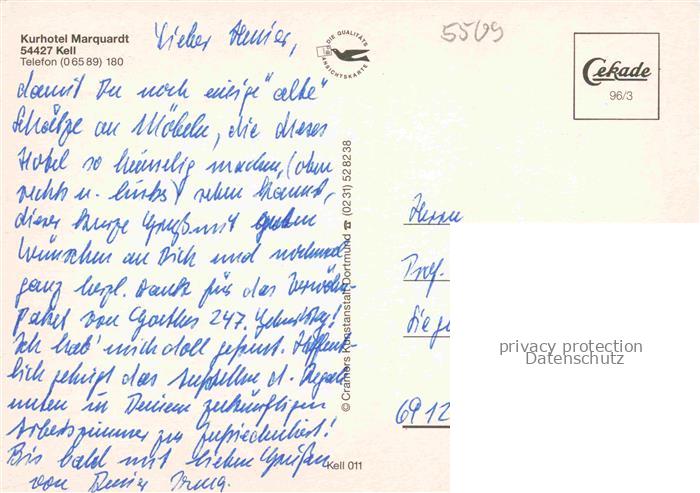 Kurhotel Marquardt
54427 Kell
Telefon (0 65 89) 180
Lieber
damit Du noch einige "alte"
Schätze an Möbeln, die dieses
Hotel so heimelig machen, (oben
rechts u. links) sehen kannst,
dieser kurze Gruß mit guten
Wünschen an Dich und nochmal
ganz herzl. Dank für das Verwöhn-
paket von Goethes 247. Geburtstag!
Ich hab' mich doll gefreut. Hoffent-
lich gelingt das Aufstellen d. Regale
unten in Deinem zukünftigen
Arbeitszimmer zur Zufriedenheit!
Bis bald mit lieben Grüßen
von Deiner
DIE QUALITÄTS
ANSICHTSKARTE
5509
Cekade
96/3
© Cramers Kunstanstalt Dortmund ☎ (02 31) 52 82 38
Kell 011
Herrn
Prof.
6912
privacy protection
Datenschutz